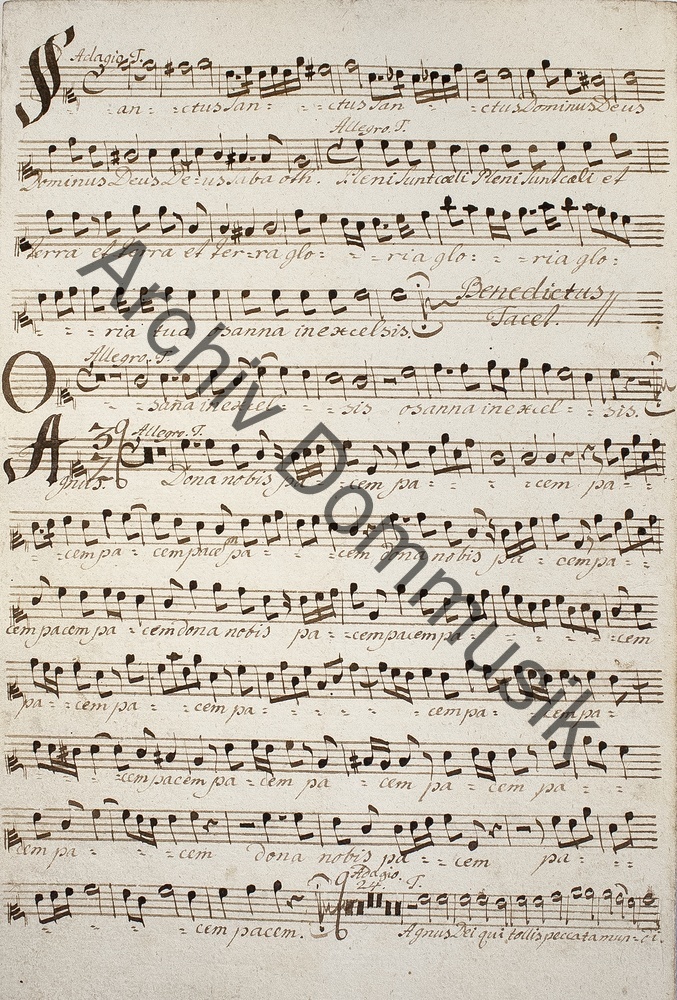 Adagio. T.
San - - ctus San - - ctus San - - ctus Dominus Deus
Allegro. T.
Dominus Deus De - us Sabaoth. Pleni Sunt cœli Pleni Sunt cœli et
terra et terra et ter - ra glo - - ria glo - - ria glo -
- - ria tua osanna in excelsis. Benedictus
Tacet.
Allegro. T.
O - - sana in excel - - sis osanna in excel - - sis.
Allegro. T.
Agnus. Dona nobis pa - - cem pa - - cem pa -
- - cem pa - cem pacem pa - - cem dona nobis pa - cem pa -
cem pacem pa - cem dona nobis pa - cem pacem pa - - cem
pa - - cem pa - - cem pa - - cem pa - - cem pa -
- - cem pacem pa - cem pa - cem pa - cem pa -
cem pa - - cem dona nobis pa - cem pa -
Adagio.
24. T.
- - cem pacem. Agnus Dei qui tollis peccata mun - di.
Archiv Dommusik